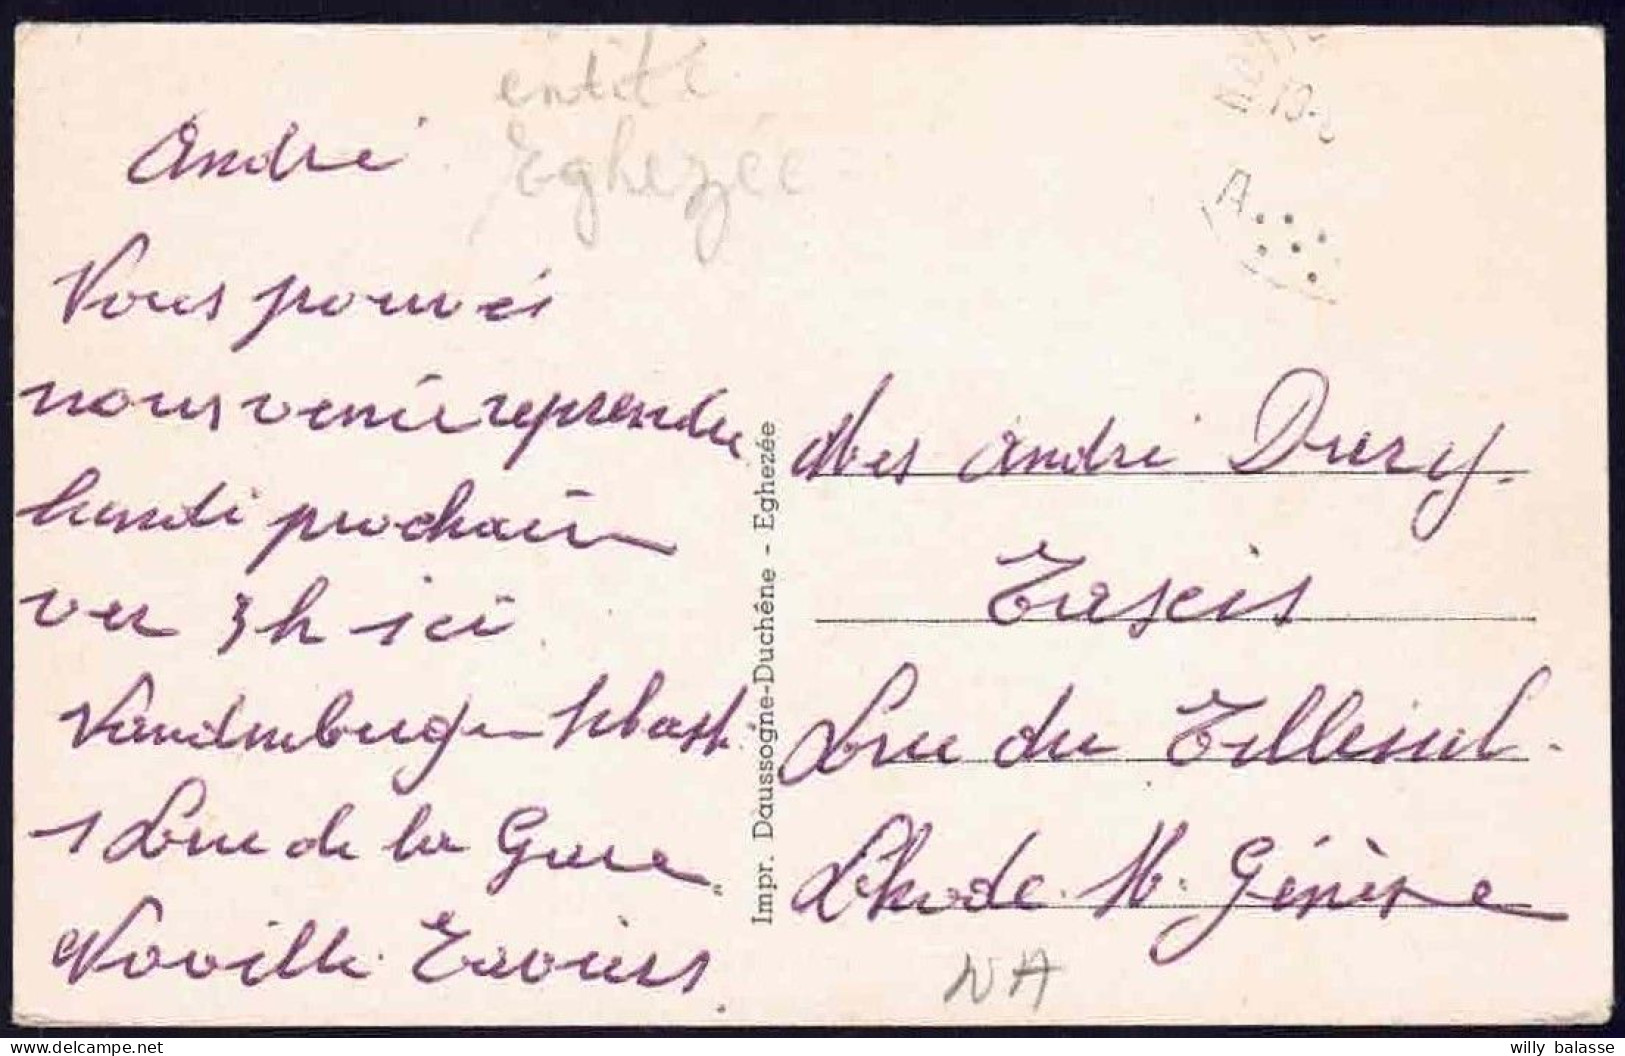 entité
Eghezée
André
Vous pouvés
nous venir reprendre
lundi prochain
ver 3 h ici
1 Rue de la Gare
Noville Taviers
Impr. Daussogne-Duchêne - Eghezée
André Dury
Taxis
Rue du Tilleul
Rhode. St. Génèse
NA
A
willy balasse